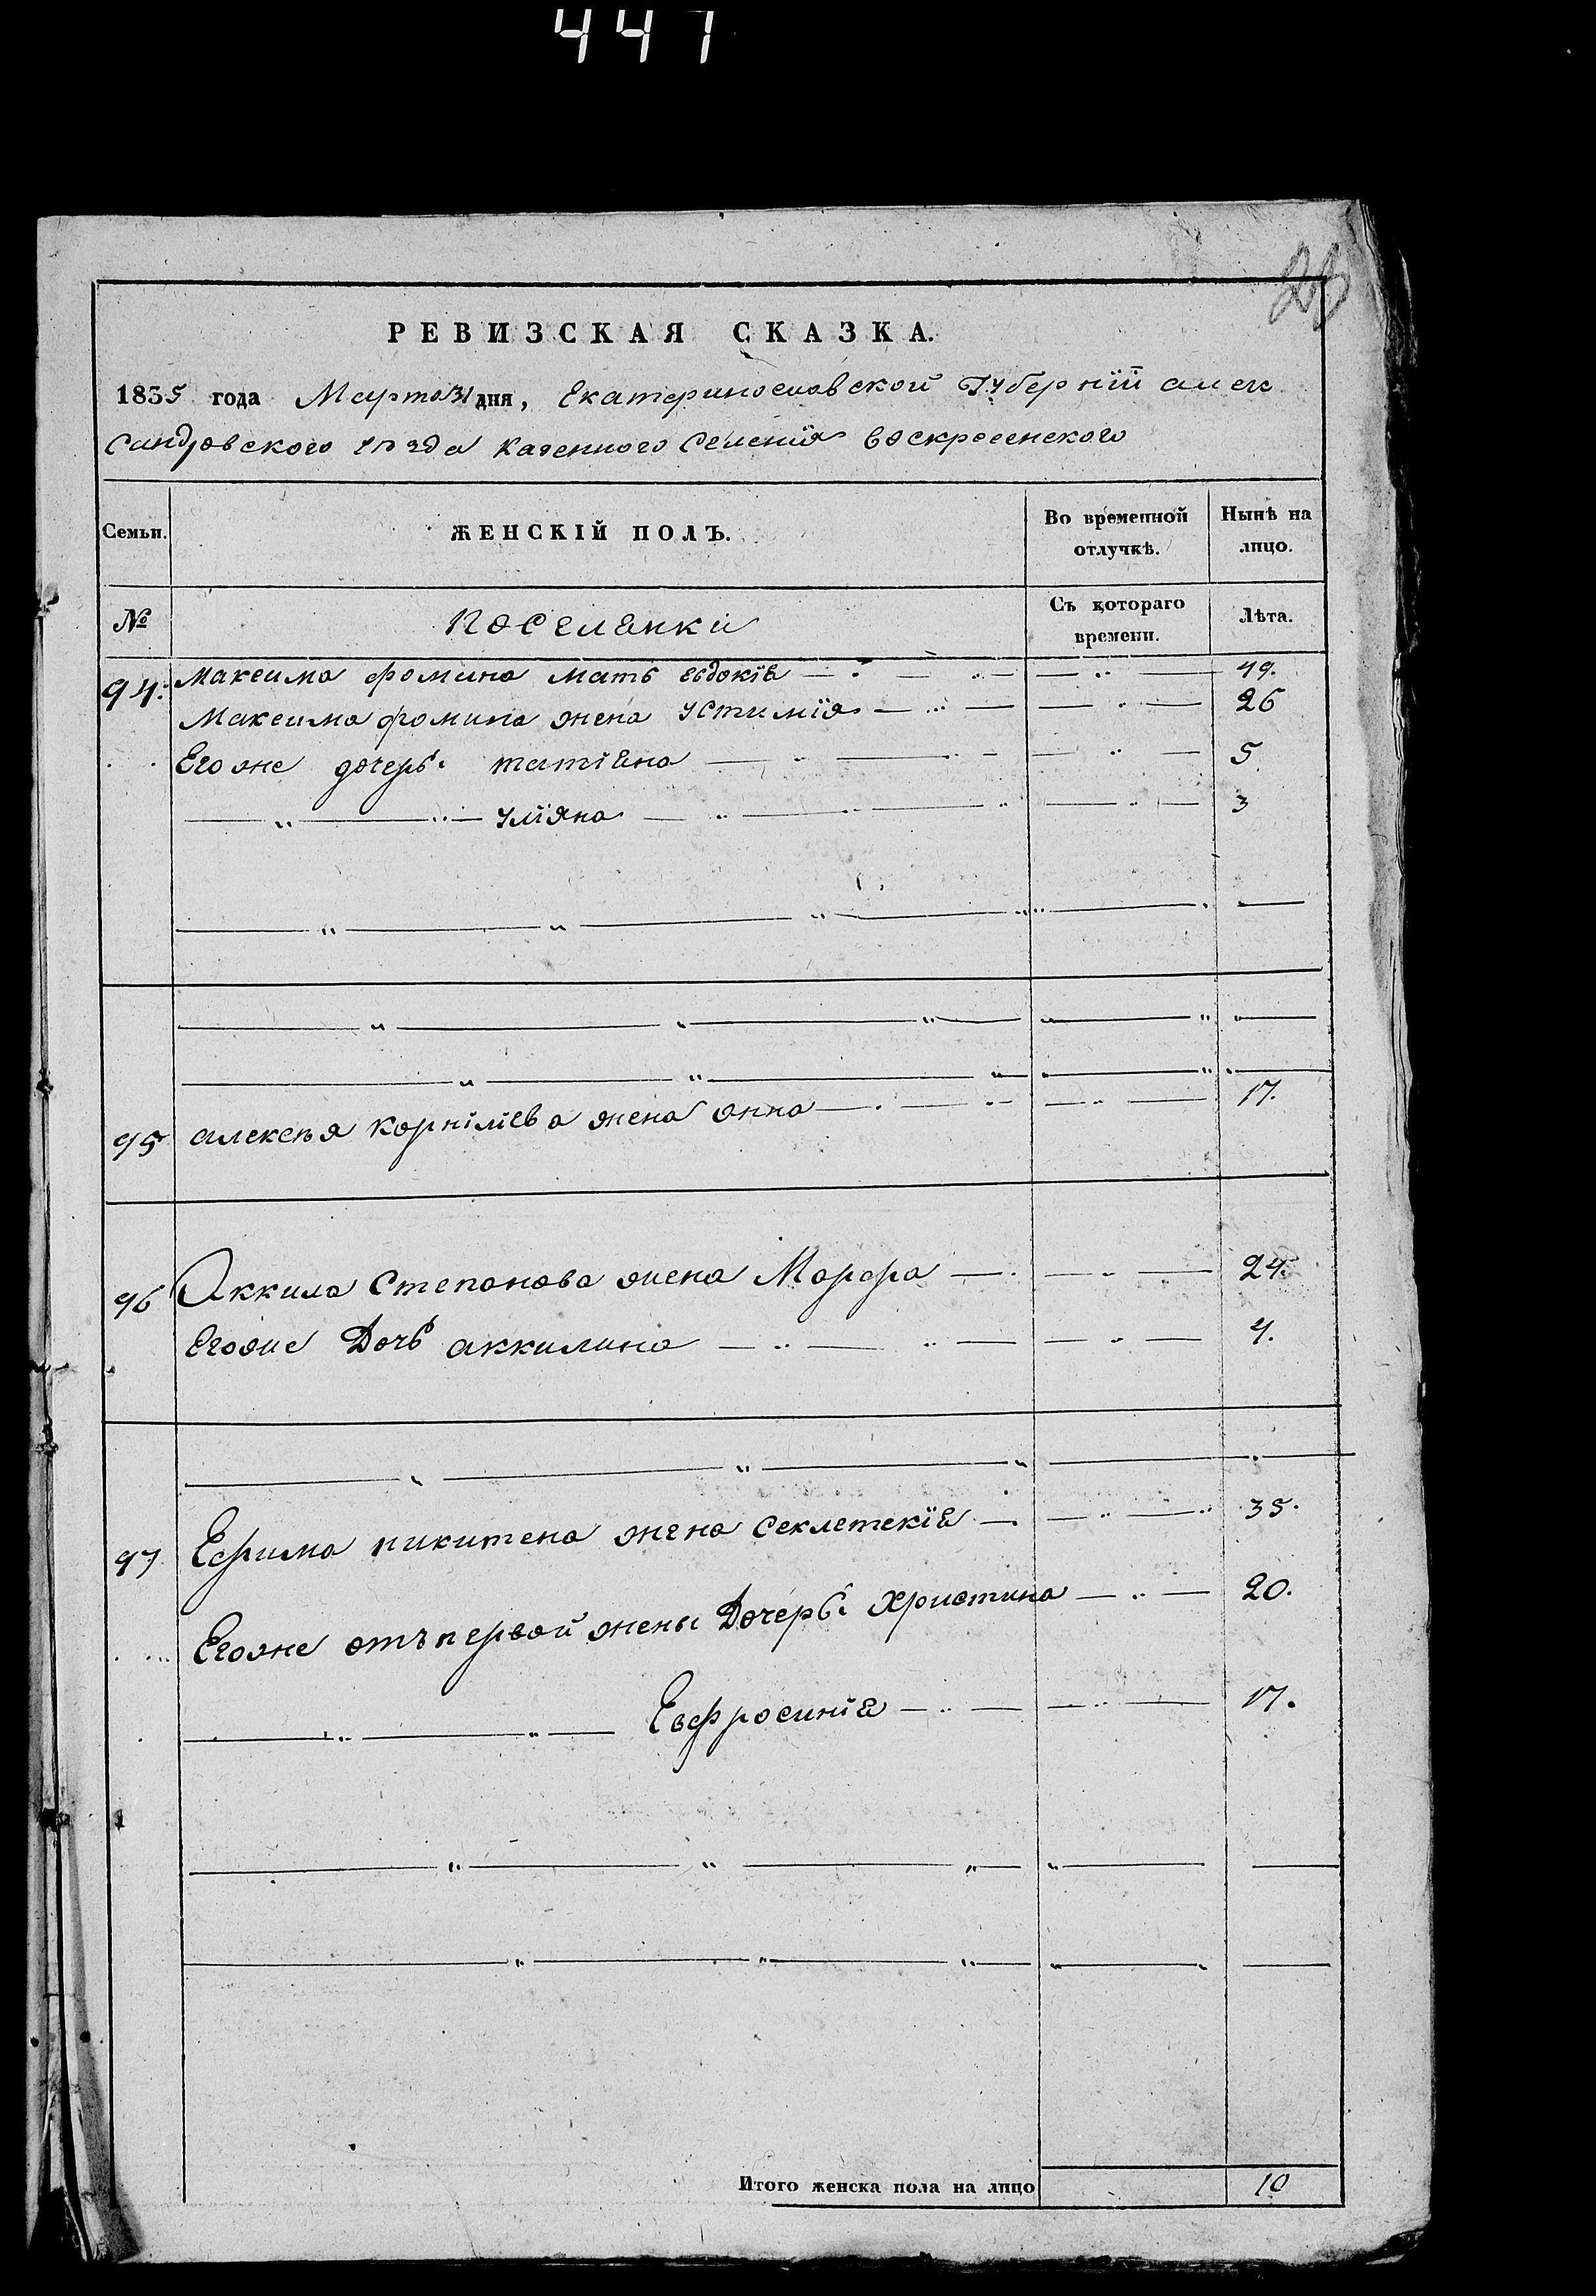 447
РЕВИЗСКАЯ СКАЗКА.
1835 года Марта 31 дня, Екатеринославской Губернїй алек
сандровского уѣзда казенного Селенїя воскресенского
Семьи. ЖЕНСКІЙ ПОЛЪ. Во временной отлучкѣ. Нынѣ на лицо.
№ Поселянки Съ котораго времени. Лѣта.
94. Максима фомина мать евдокїя — 49.
Максима фомина жена устинїя — 26
Его же дочерь: татіяна — 5
— " — " — улїяна — 3
95 алексѣя корнїлїева жена анна — 17.
96 Аккила Степанова жена Марфа — 24.
Его же Дочь аккилина — 4.
97 Ефима никитена жена секлетекїя — 35.
Его же отъ первой жены Дочерь: Христина — 20.
— " — " — Евфросинїя — 17.
Итого женска пола на лицо 10